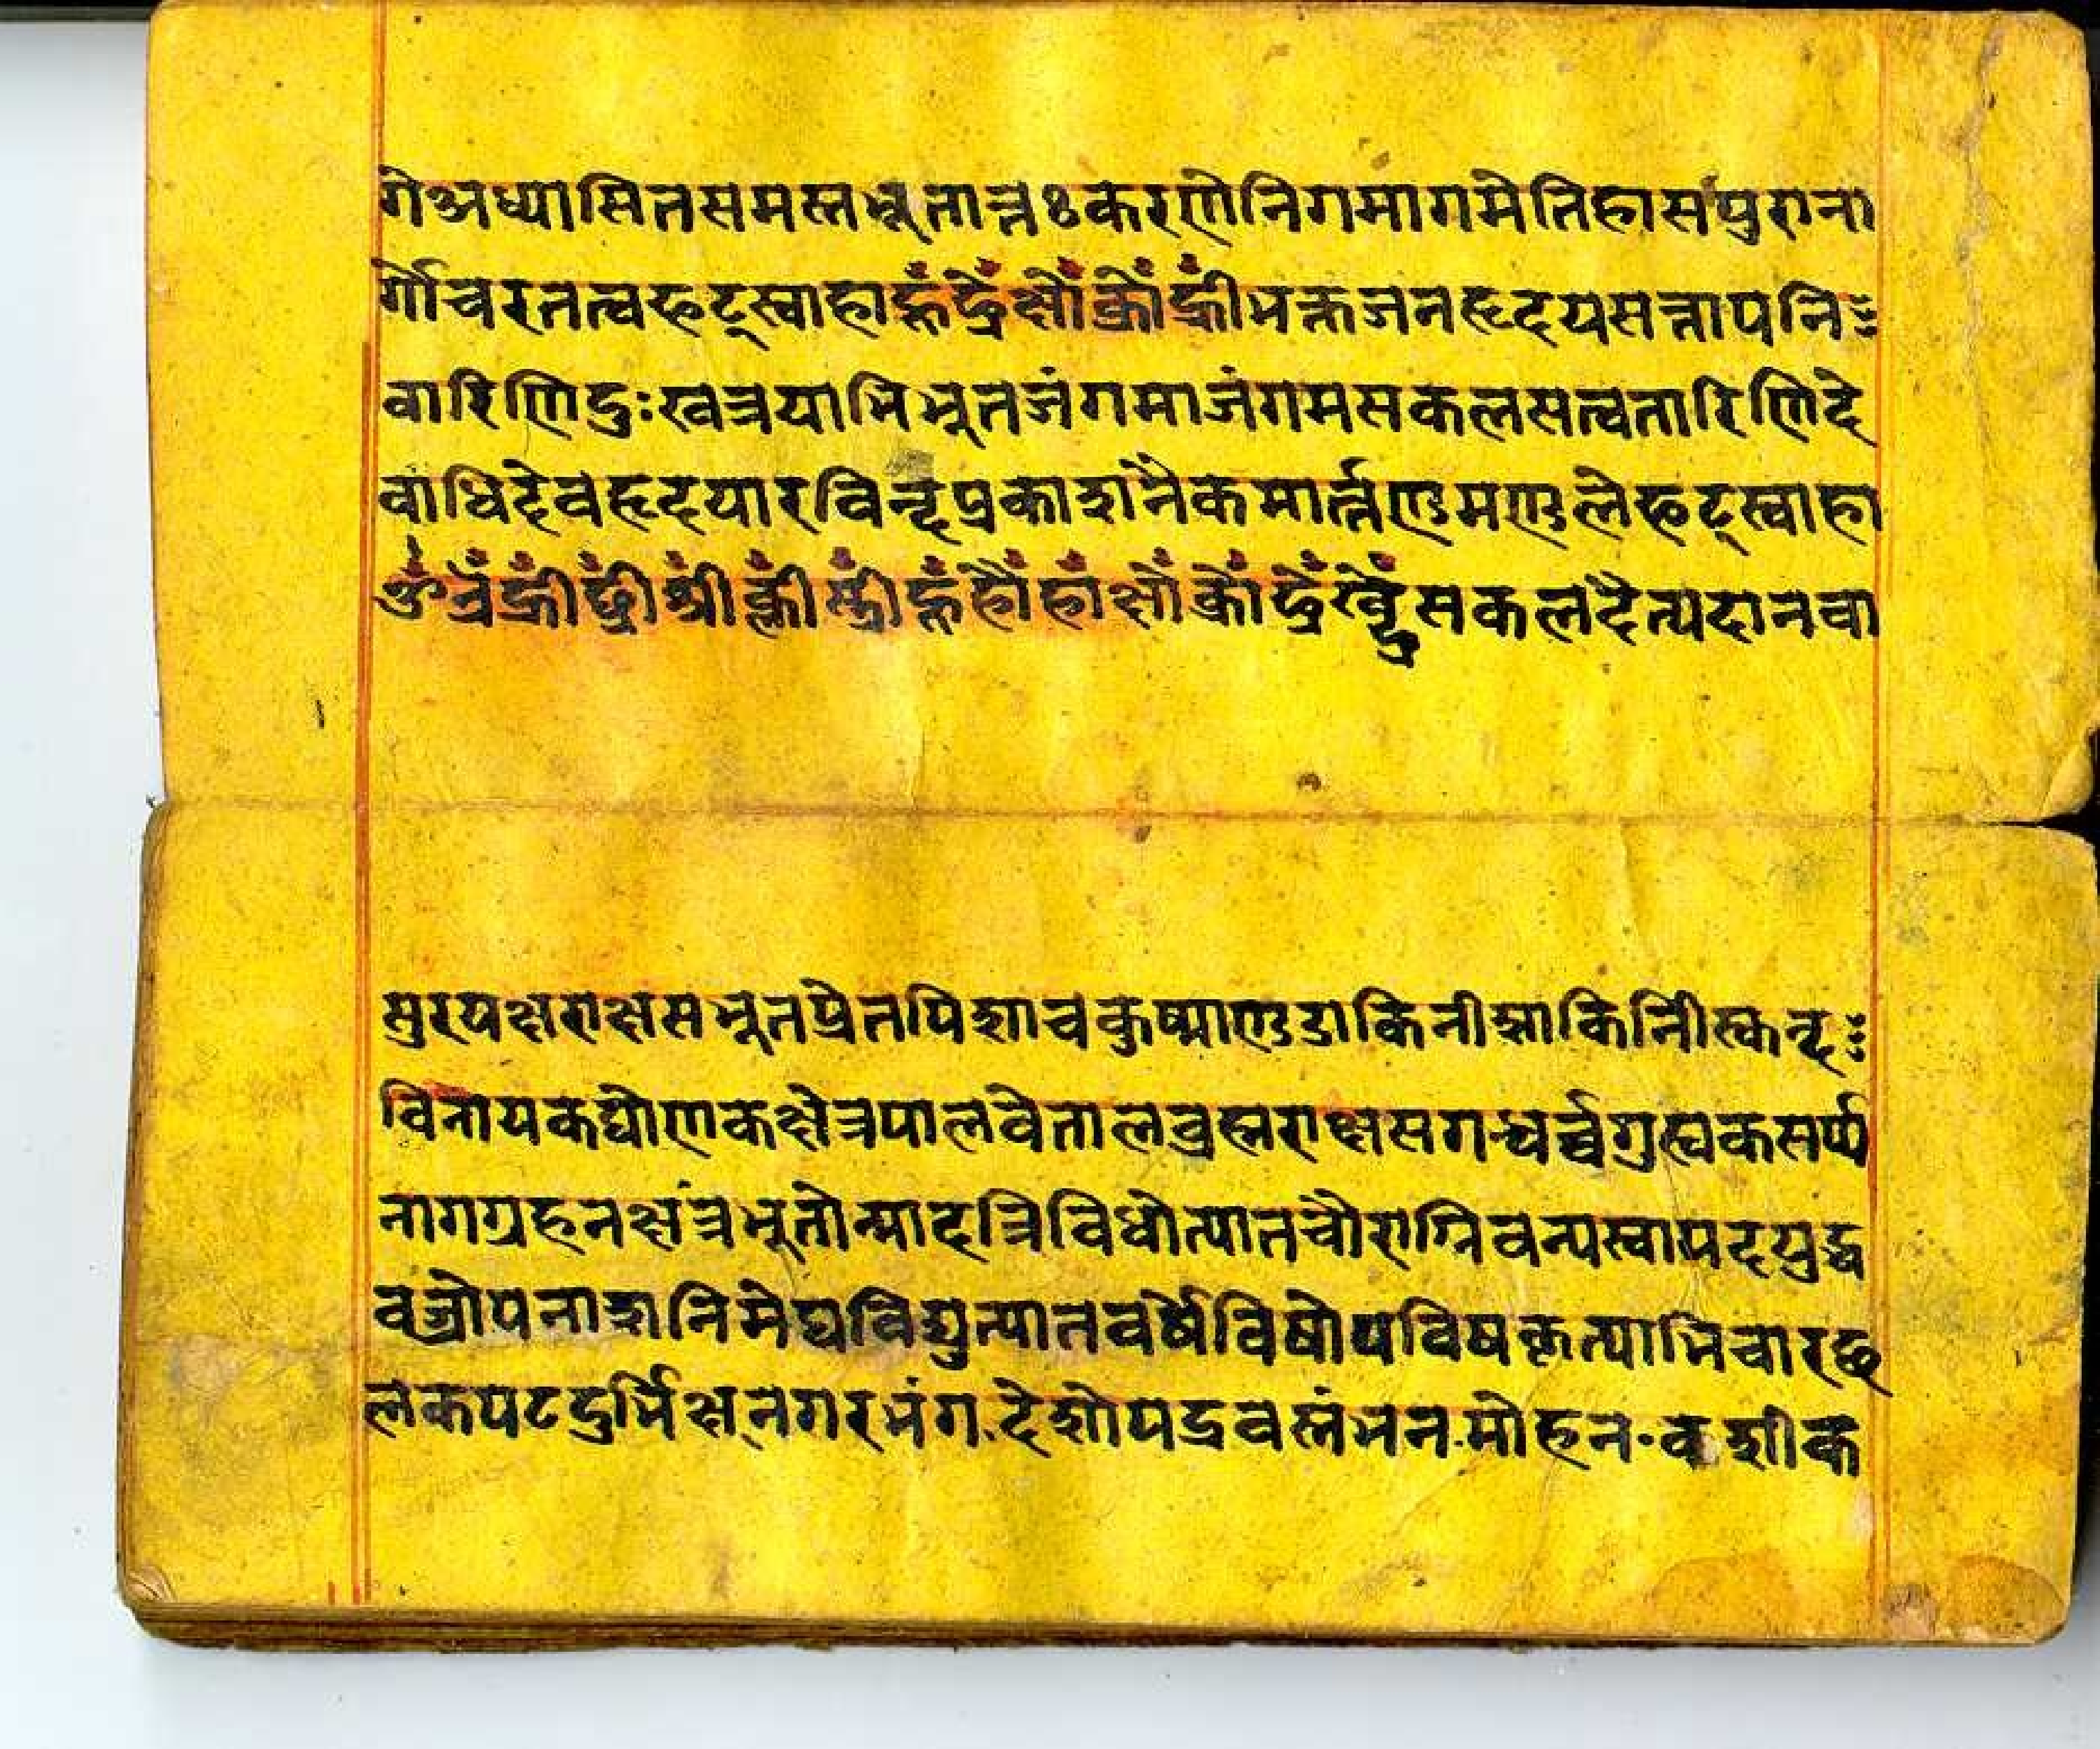 गेअध्यासितसमस्तभूतान्तःकरणेनिगमागमेतिहासपुराना
र्गोचरतत्वफट्स्वाहाह्रूँद्रेँक्षौँक्रोँह्रीँभक्तजनहृदयसन्तापनिः
वारिणिदुःखत्रयाभिभूतजंगमाजंगमसकलसत्वतारिणिदे
वाधिदेवहृदयारविन्दप्रकाशनैकमार्त्तण्डमण्डलेफट्स्वाहा
ॐत्रँह्रीँछ्रीँश्रीँक्लीँस्त्रीँह्रूँहौँहाँक्षौँक्रोँ सकलदैत्यदानवा
सुरयक्षराक्षसभूतप्रेतपिशाचकुष्माण्डडाकिनीशाकिनीस्कन्दः
विनायकघोणकक्षेत्रपालवेतालब्रह्मराक्षसगन्धर्व्वगुह्यकसर्प्प
नागग्रहनक्षत्रभूतोन्मादत्रिविधोत्पातचौराग्निवन्यस्वापदयुद्ध
वज्रोपनाशनिमेघविद्युत्पातवर्षेविषोपविषकृत्याभिचारछ
लकपटदुर्भिक्ष्नगरभंग.देशोपद्रवस्तंभन.मोहन.वशीक